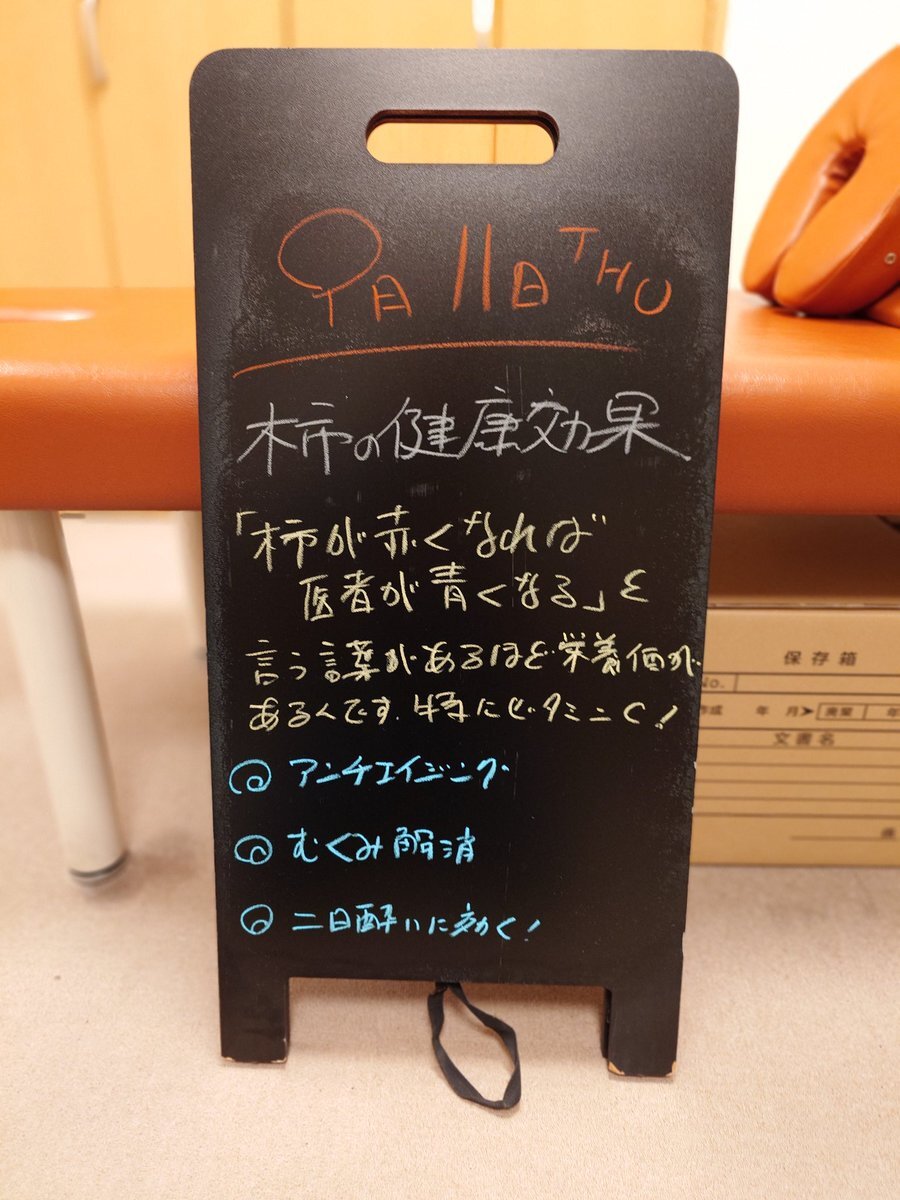 9月11日 THU
柿の健康効果
「柿が赤くなれば
医者が青くなる」と
言う諺があるほど栄養価が
あるんです。特にビタミンC!
アンチエイジング
むくみ解消
二日酔いに効く!
保存箱
No.
作成 年 月 廃棄 年
文書名